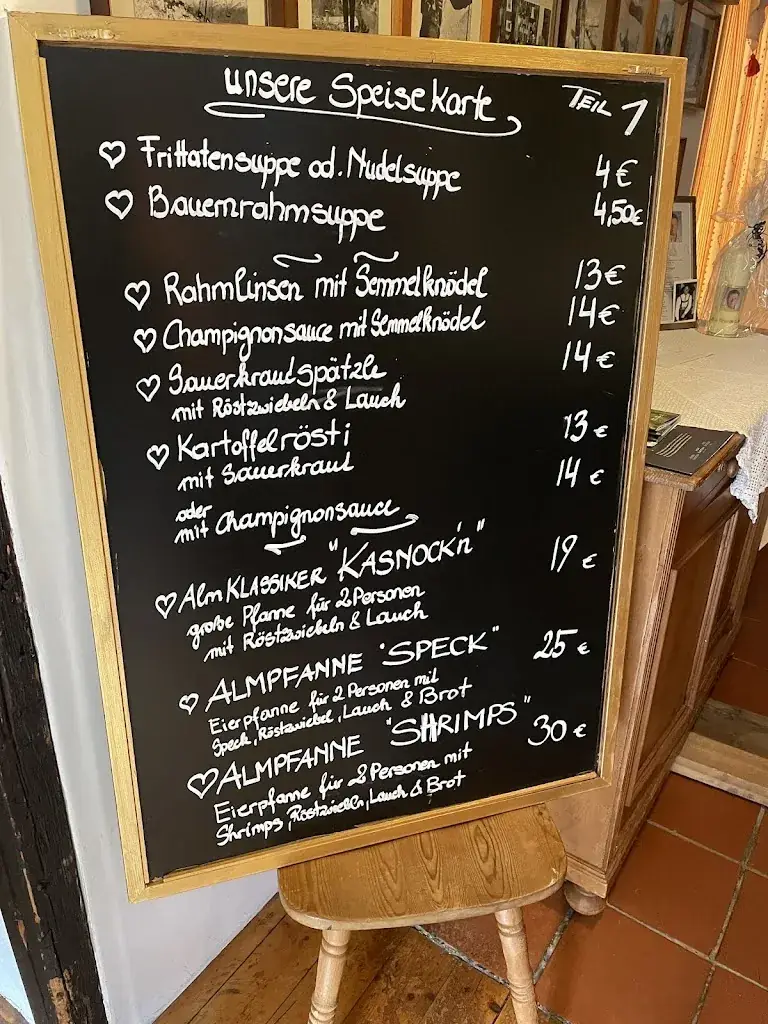 unsere Speisekarte TEIL 1
Frittatensuppe od. Nudelsuppe 4€
Bauernrahmsuppe 4,50€
Rahmlinsen mit Semmelknödel 13€
Champignonsauce mit Semmelknödel 14€
Sauerkrautspätzle 14€
mit Röstzwiebeln & Lauch
Kartoffelrösti 13€
mit Sauerkraut 14€
oder
mit Champignonsauce
Alm KLASSIKER "KASNOCK'n" 19€
große Pfanne für 2 Personen
mit Röstzwiebeln & Lauch
ALMPFANNE "SPECK" 25€
Eierpfanne für 2 Personen mit
Speck, Röstzwiebel, Lauch & Brot
ALMPFANNE "SHRIMPS" 30€
Eierpfanne für 2 Personen mit
Shrimps, Röstzwiebeln, Lauch & Brot